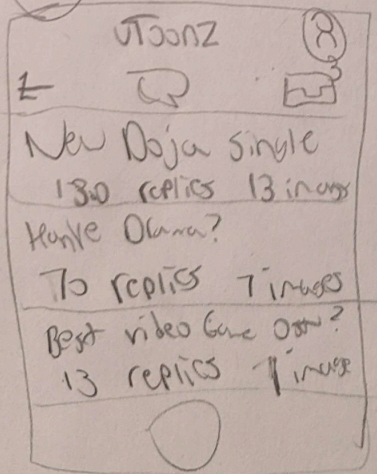 uToonz
New Doja single
130 replies 13 images
Drama?
70 replies 7 images
Best video Game OST?
13 replies 1 image